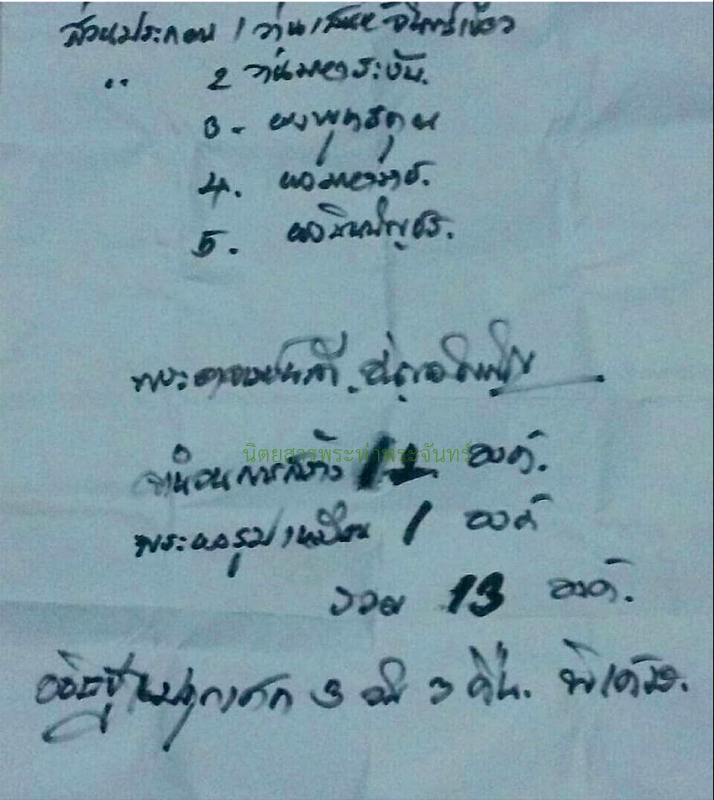 ส่วนประกอบ 1 ว่านเสน่ห์จันทร์เขียว
" 2 ว่านมหาระงับ.
3. ผงพุทธคุณ
4. ผงมหาราช.
5. ผงชินบัญชร.
พระอาจารย์
นิตยสารพระท่าพระจันทร์
จำนวนการสร้าง 12 องค์.
พระผงรูปเหมือน 1 องค์
รวม 13 องค์.
อธิษฐานปลุกเสก 3 วัน 3 คืน.